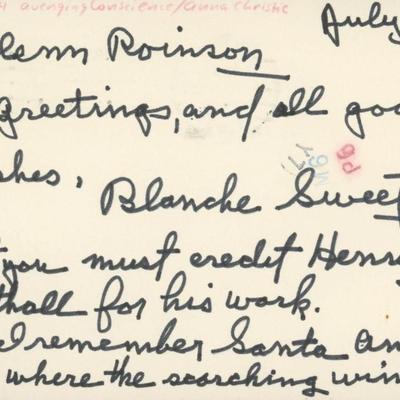 avenging Conscience/Anna Christie
July
lenn Roinson
greetings, and all goo
shes,
Blanche Sweet
you must credit Henry
thall for his work.
I remember Santa An
where the scorching win